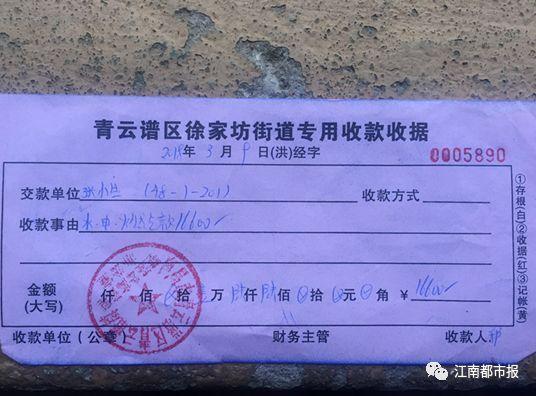 青云谱区徐家坊街道专用收款收据
2015年3月9日(洪)经字 0005890
交款单位 (48-1-201) 收款方式
收款事由 水.电. 16600
金额(大写) 仟 佰 拾 壹万 陆仟 陆佰 拾 元 角 ¥ 16600
收款单位(公章) 财务主管 收款人
①存根(白)②收据(红)③记帐(黄)
江南都市报